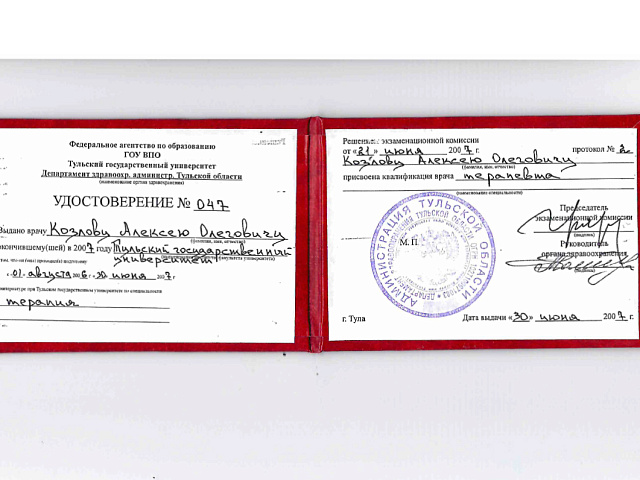 Федеральное агентство по образованию
ГОУ ВПО
Тульский государственный университет
Департамент здравоохр. администр. Тульской области
(наименование органа здравоохранения)
УДОСТОВЕРЕНИЕ № 047
Выдано врачу Козлову Алексею Олеговичу
(фамилия, имя, отчество)
окончившему(шей) в 2007 году Тульский государственный
университет
«01» августа 2006 г. «30» июня 2007 г.
интернатуре при Тульском государственном университете по специальности
терапия
Решением экзаменационной комиссии
от «21» июня 2007 г. протокол № 2
Козлову Алексею Олеговичу
(фамилия, имя, отчество)
присвоена квалификация врача терапевта
(наименование специальности)
Председатель
экзаменационной комиссии
(подпись)
М. П.
Руководитель
органа здравоохранения
(подпись)
АДМИНИСТРАЦИЯ ТУЛЬСКОЙ ОБЛАСТИ
г. Тула Дата выдачи «30» июня 2007 г.